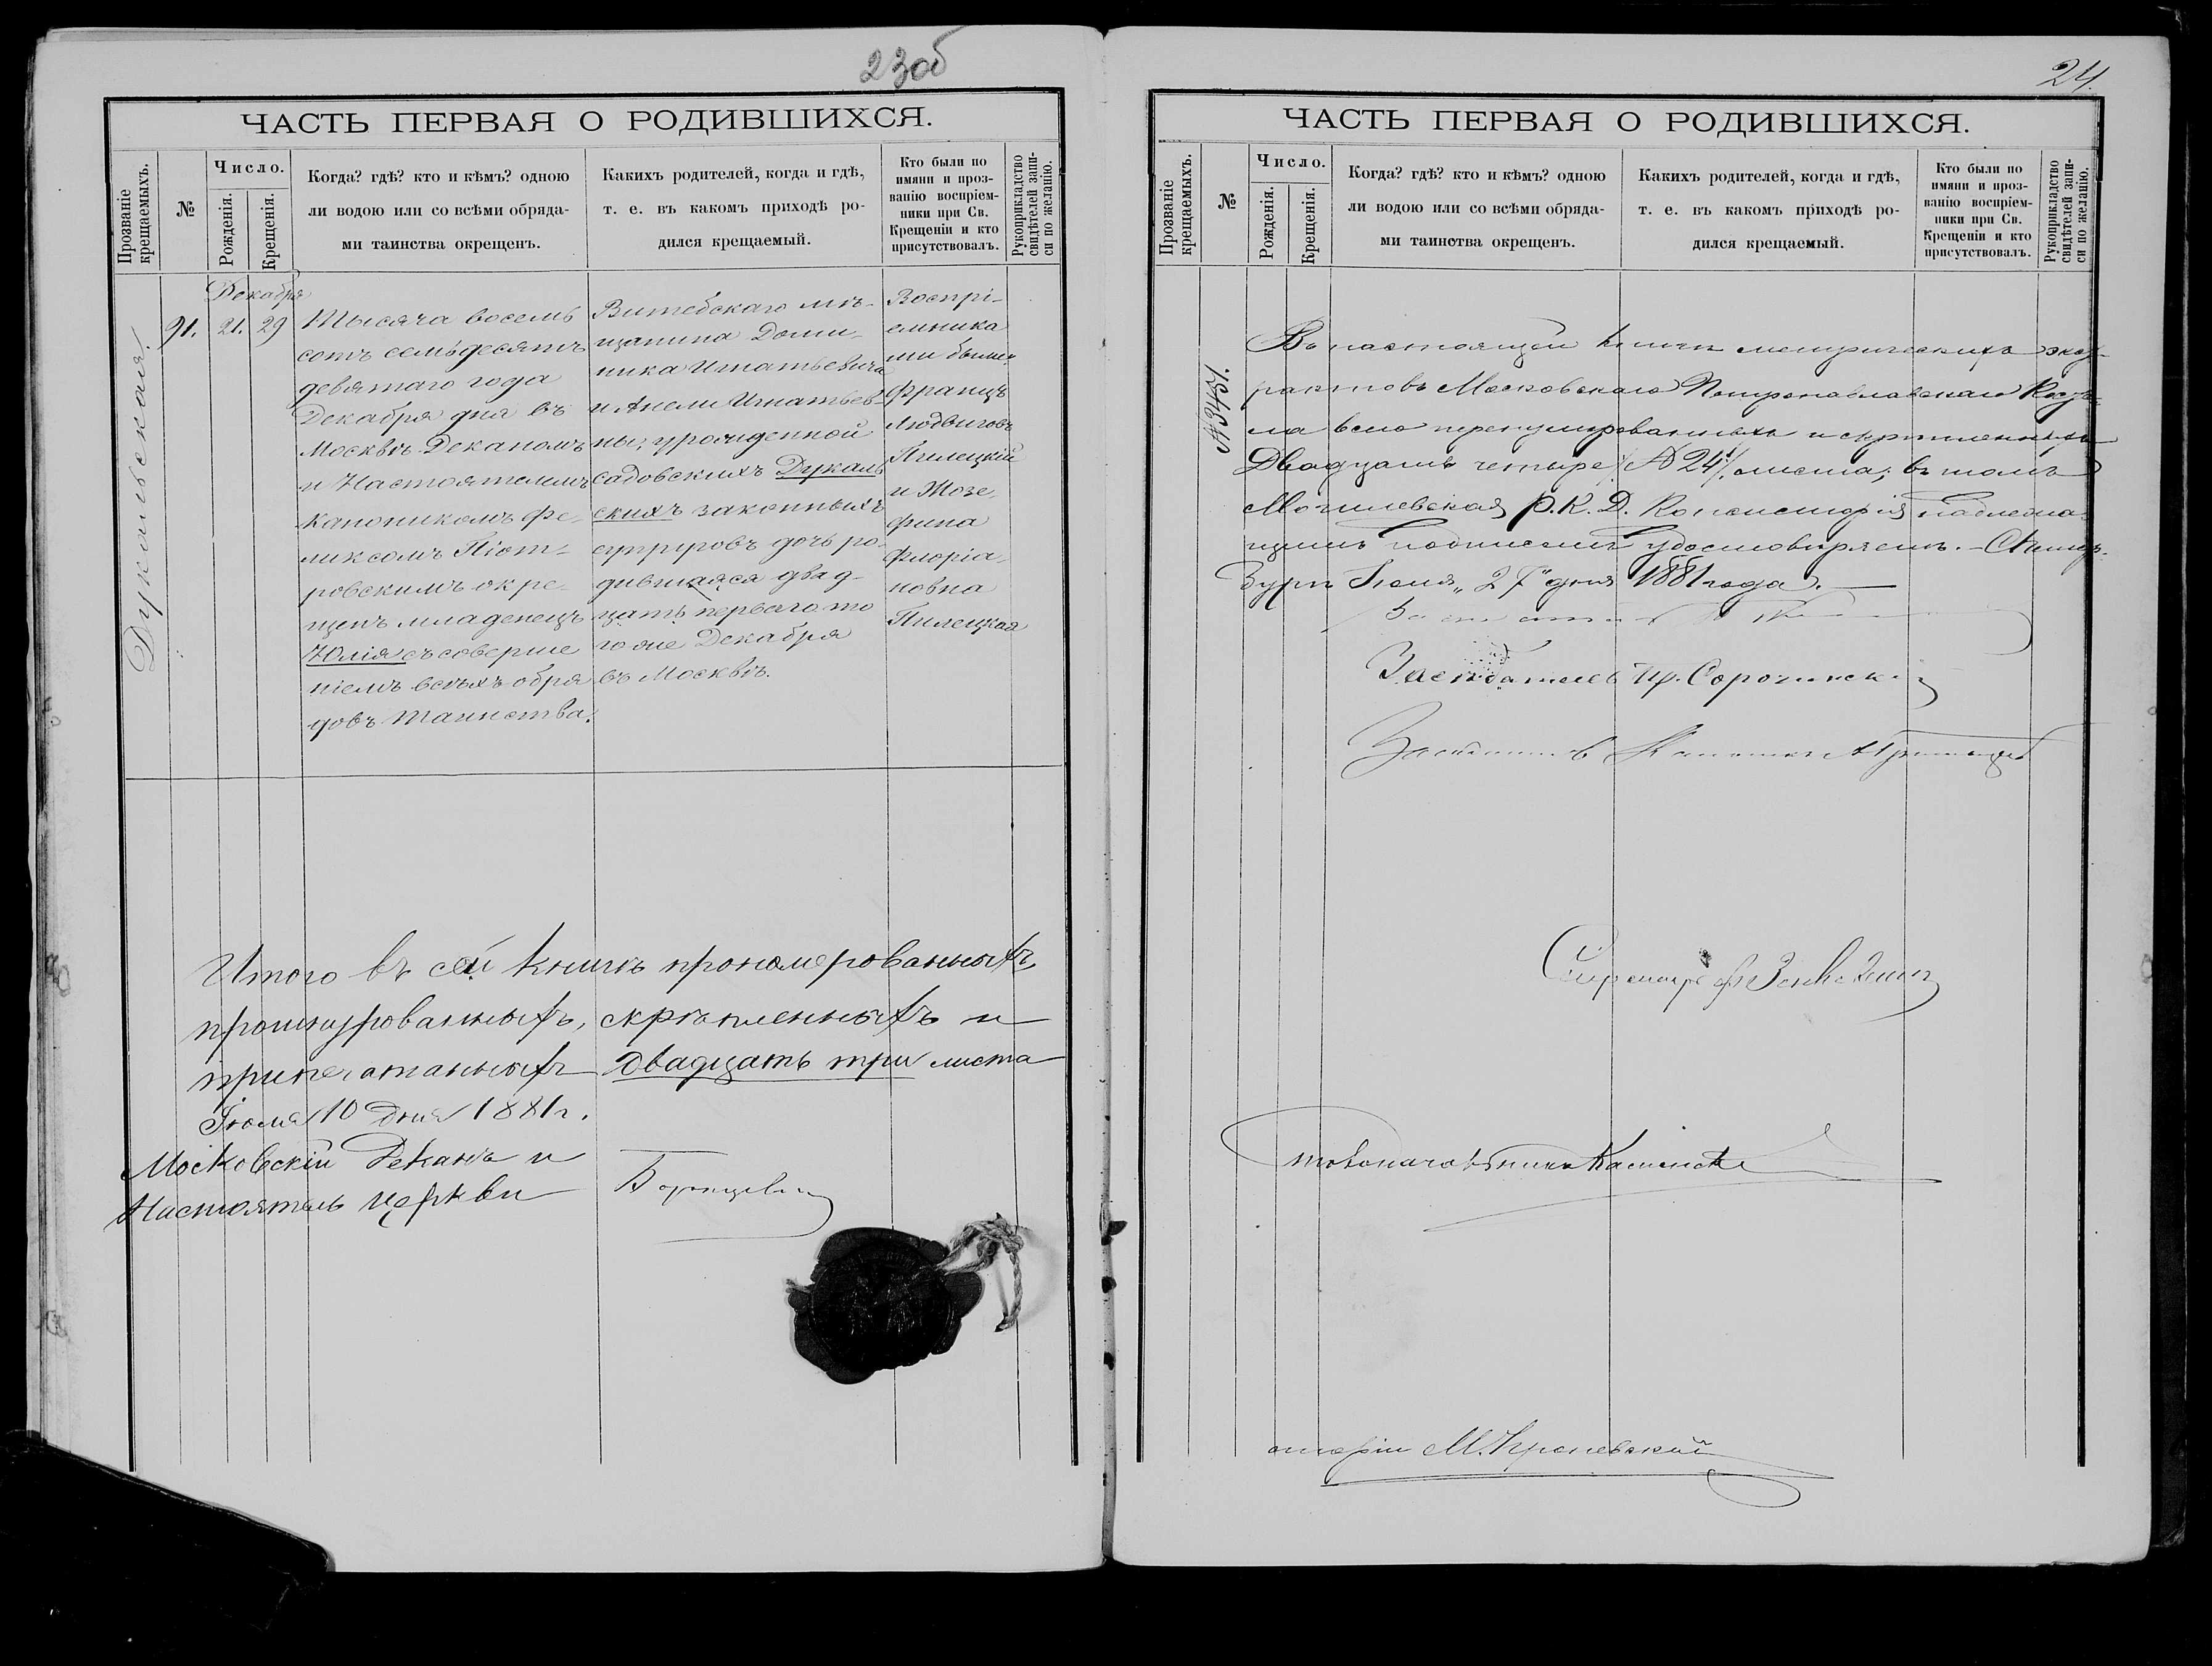 23об
ЧАСТЬ ПЕРВАЯ О РОДИВШИХСЯ.
Прозваніе крещаемыхъ.
№
Число.
Рожденія.
Крещенія.
Когда? гдѣ? кто и кѣмъ? одною
ли водою или со всѣми обряда-
ми таинства окрещенъ.
Какихъ родителей, когда и гдѣ,
т. е. въ какомъ приходѣ ро-
дился крещаемый.
Кто были по
имяни и проз-
ванію воспріем-
ники при Св.
Крещеніи и кто
присутствовалъ.
Рукоприкладство
свидѣтелей запи-
си по желанію.
Дукальская.
Декабря
91. 21. 29
Тысяча восемь
сотъ семьдесятъ
девятаго года
Декабря дня въ
Москвѣ Деканомъ
и Настоятелемъ
Каноникомъ Фе-
ликсомъ Піот-
ровскимъ окре-
щенъ младенецъ
Юлія съ соверше
ніемъ всѣхъ обря
довъ таинства.
Витебскаго мѣ-
щанина Доми-
ника Игнатьевича
и Анели Игнатьев-
ны, урожденной
Садовскихъ Дукаль
скихъ законныхъ
супруговъ дочь ро-
дившаяся двад-
цать перваго то
го же Декабря
въ Москвѣ.
Воспрі-
емника
ми были
Францъ
Людвиговъ
Пилецкій
и Жозе-
фина
Флоріа-
новна
Пилецкая
Итого въ сей книгѣ прономерованныхъ,
прошнурованныхъ, скрѣпленныхъ и
припечатанныхъ двадцать три листа
Іюля 10 дня 1881 г.
Московскій Деканъ и
Настоятель церкви
24.
ЧАСТЬ ПЕРВАЯ О РОДИВШИХСЯ.
Прозваніе крещаемыхъ.
№
Число.
Рожденія.
Крещенія.
Когда? гдѣ? кто и кѣмъ? одною
ли водою или со всѣми обряда-
ми таинства окрещенъ.
Какихъ родителей, когда и гдѣ,
т. е. въ какомъ приходѣ ро-
дился крещаемый.
Кто были по
имяни и проз-
ванію воспріем-
ники при Св.
Крещеніи и кто
присутствовалъ.
Рукоприкладство
свидѣтелей запи-
си по желанію.
Въ настоящей книгѣ метрическихъ экст-
рактовъ Московскаго Петропавловскаго Косте-
ла всего перенумерованныхъ и скрѣпленныхъ
Двадцать четыре /№ 24/. листа; въ томъ
Могилевская Р. К. Д. Консисторія надлежа-
щимъ подписомъ удостовѣряетъ. – С. Петер-
бургъ Іюля „27" дня 1881 года.
Засѣдатель Пр. Сорочинскій
Засѣдатель Каноникъ
Секретарь
Столоначальникъ Каминскій
М.